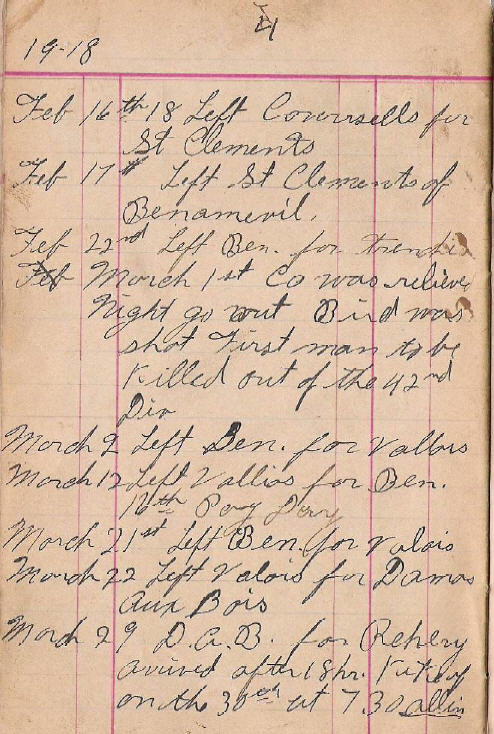 4
19-18
Feb 16th 18 Left Coversells for
St Clements
Feb 17th Left St Clements of
Benamevil.
Feb 22nd Left Ben. for trenches
Feb March 1st Co was relieve
Night go out Bird was
shot First man to be
Killed out of the 42nd
Div
March 2 Left Ben. for Vallois
March 12 Left Vallios for Ben.
16th
March 21st Left Ben. for Valois
March 22 Left Valois for Damas
Aux Bois
March 29 D.A.B. for Rehery
arived after 18 hr.
on the 30th at 7.30 allin